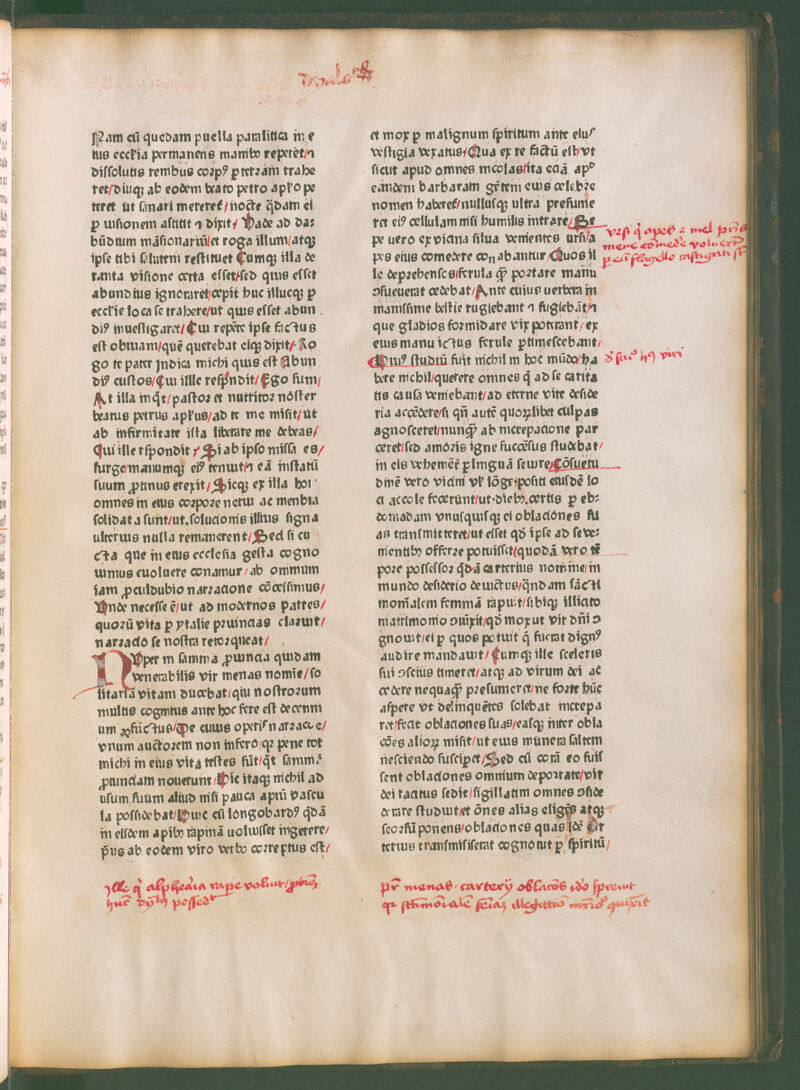 Nam cū quedam puella paralitica in e
ius eccl'ia permanens manibꝰ reperet/⁊
dissolutis renibus corpꝰ p terrā trahe
ret/diuqꝫ ab eodem beato petro apl'o pe
teret ut sanari mereret/nocte q̄dam ei
p uisionem astitit ⁊ dixit/Vade ad da⸗
būdium māsionariū/et roga illum/atqꝫ
ipse tibi salutem restituet Cumqꝫ illa de
tanta visione certa esset/sed quis esset
abundius ignoraret/cepit huc illucqꝫ p
eccl'ie loca se trahere/ut quis esset abun
diꝰ inuestigaret/Cui repēte ipse factus
est obuiam/quē querebat eiqꝫ dixit/Ro
go te pater Indica michi quis est Abun
diꝰ custos/Cui illle respōndit/Ego sum/
At illa inq̄t/pastor et nutritor noster
beatus petrus apl'us/ad te me misit/ut
ab infirmitate ista liberare me debeas/
Qui ille respondit/Si ab ipso missa es/
surge manumqꝫ eiꝰ tenuit/⁊ eā instatū
suum protinus erexit/Sicqꝫ ex illa hor
omnes in eius corpore nerui ac menbra
solidata sunt/ut solucionis illius signa
ulterius nulla remanerent/Sed si cu
cta que in eius ecclesia gesta cogno
uimus euoluere conamur/ab omnium
iam proculdubio narracione cōcessimus/
Vnde necesse ē/ut ad modernos patres/
quorū vita p ytalie prouincias claruit/
narracio se nostra retorqueat/
Nuper in samma prouincia quidam
venerabilis vir menas nomīe/so
litariā vitam ducebat/quī nostrorum
multis cognitus ante hoc fere est decenni
um defūctus/De cuius operiꝰ narracōe/
vnum auctorem non insero/qꝫ pene tot
michi in eius vita testes sūt/q̄t samnī
prouinciam nouerunt/Hic itaqꝫ nichil ad
usum suum aliud nisi pauca apiū vascu
la possidebat/Huic cū longobardꝰ q̄dā
in eisdem apibꝫ rapinā uoluisset ingerere/
p̄us ab eodem viro verbo correptus est/
et mox p malignum spiritum ante eiuꝰ
vestigia vexatus/Qua ex re factū est/vt
sicut apud omnes incolas/ita eciā apᵈ
eandem barbaram gētem eius celebre
nomen haberet/nullusqꝫ ultra presume
ret eiꝰ cellulam nisi humilis intrare/Se
pe uero ex vicina silua venientes ursi/a
pes eius comedere conabantur/Quos il
le deprehensos/ferula q̄ portare manu
ɔsueuerat cedebat/Ante cuius uerbera in
manissime bestie rugiebant ⁊ fugiebāt/⁊
que gladios formidare vix poterant/ex
eius manu ictus ferule ptimescebant/
Huiꝰ studiū fuit nichil in hoc mūdo/ha
bere nichil/querere omnes q̄ ad se carita
tis causa veniebant/ad eterne vite deside
ria accēdere/si qn̄ autē quorumlibet culpas
agnosceret/nunq̄ ab increpacione par
ceret/sed amoris igne succēsus studebat/
in eis vehemēt̄ p linguā seuire/Cōsuetu
dinē vero vicini vel lōge positi eiusdē lo
ci accole fecerunt/ut diebꝫ certis p eb⸗
domadam vnusquisqꝫ ei oblaciones su
as transmitteret/ut esset qd̄ ipse ad se ve⸗
nientibꝫ offerre potuisset/quodā vero tē
pore possessor q̄dā carterius nomine/in
mundo desiderio deuictus/q̄ndam sācti
monialem feminā rapuit/sibiqꝫ illicito
matrimonio ɔiūxit/qd̄ mox ut vir dn̄i ɔ
gnouit/ei p quos potuit q̄ fuerat dignꝰ
audire mandauit/Cumqꝫ ille sceleris
sui ɔscius timeret/atqꝫ ad virum dei ac
cedere nequaq̄ presumeret/ne forte hūc
aspere vt delinquētes solebat increpa
ret/fecit oblaciones suas/easqꝫ inter obla
cōes alioꝝ misit/ut eius munera saltem
nesciendo susciperet/Sed cū corā eo fuis
sent oblaciones omnium deportate/vir
dei tacitus sedit/sigillatim omnes ɔside
derare studuit/et ōnes alias eligēs atqꝫ
seorsū ponens/oblaciones quas idē Car
terius transmiserat cognouit p spiritū/
vrsi q̄ apes ⁊ mel
mene comede voluerū
p eū flagello castigati sūt